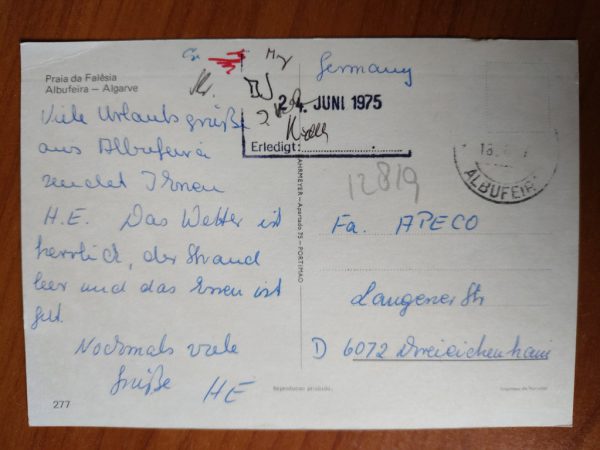 Praia da Falésia
Albufeira — Algarve
Viele Urlaubsgrüße
aus Albufeira
sendet Ihnen
H.E. Das Wetter ist
herrlich, der Strand
leer und das Essen ist
gut.
Nochmals viele
Grüße HE
277
Germany
24. JUNI 1975
Erledigt:
ALBUFEIR
12819
Fa. APECO
Langener Str
D 6072 Dreieichenhain
Apartado 75 — PORTIMÃO